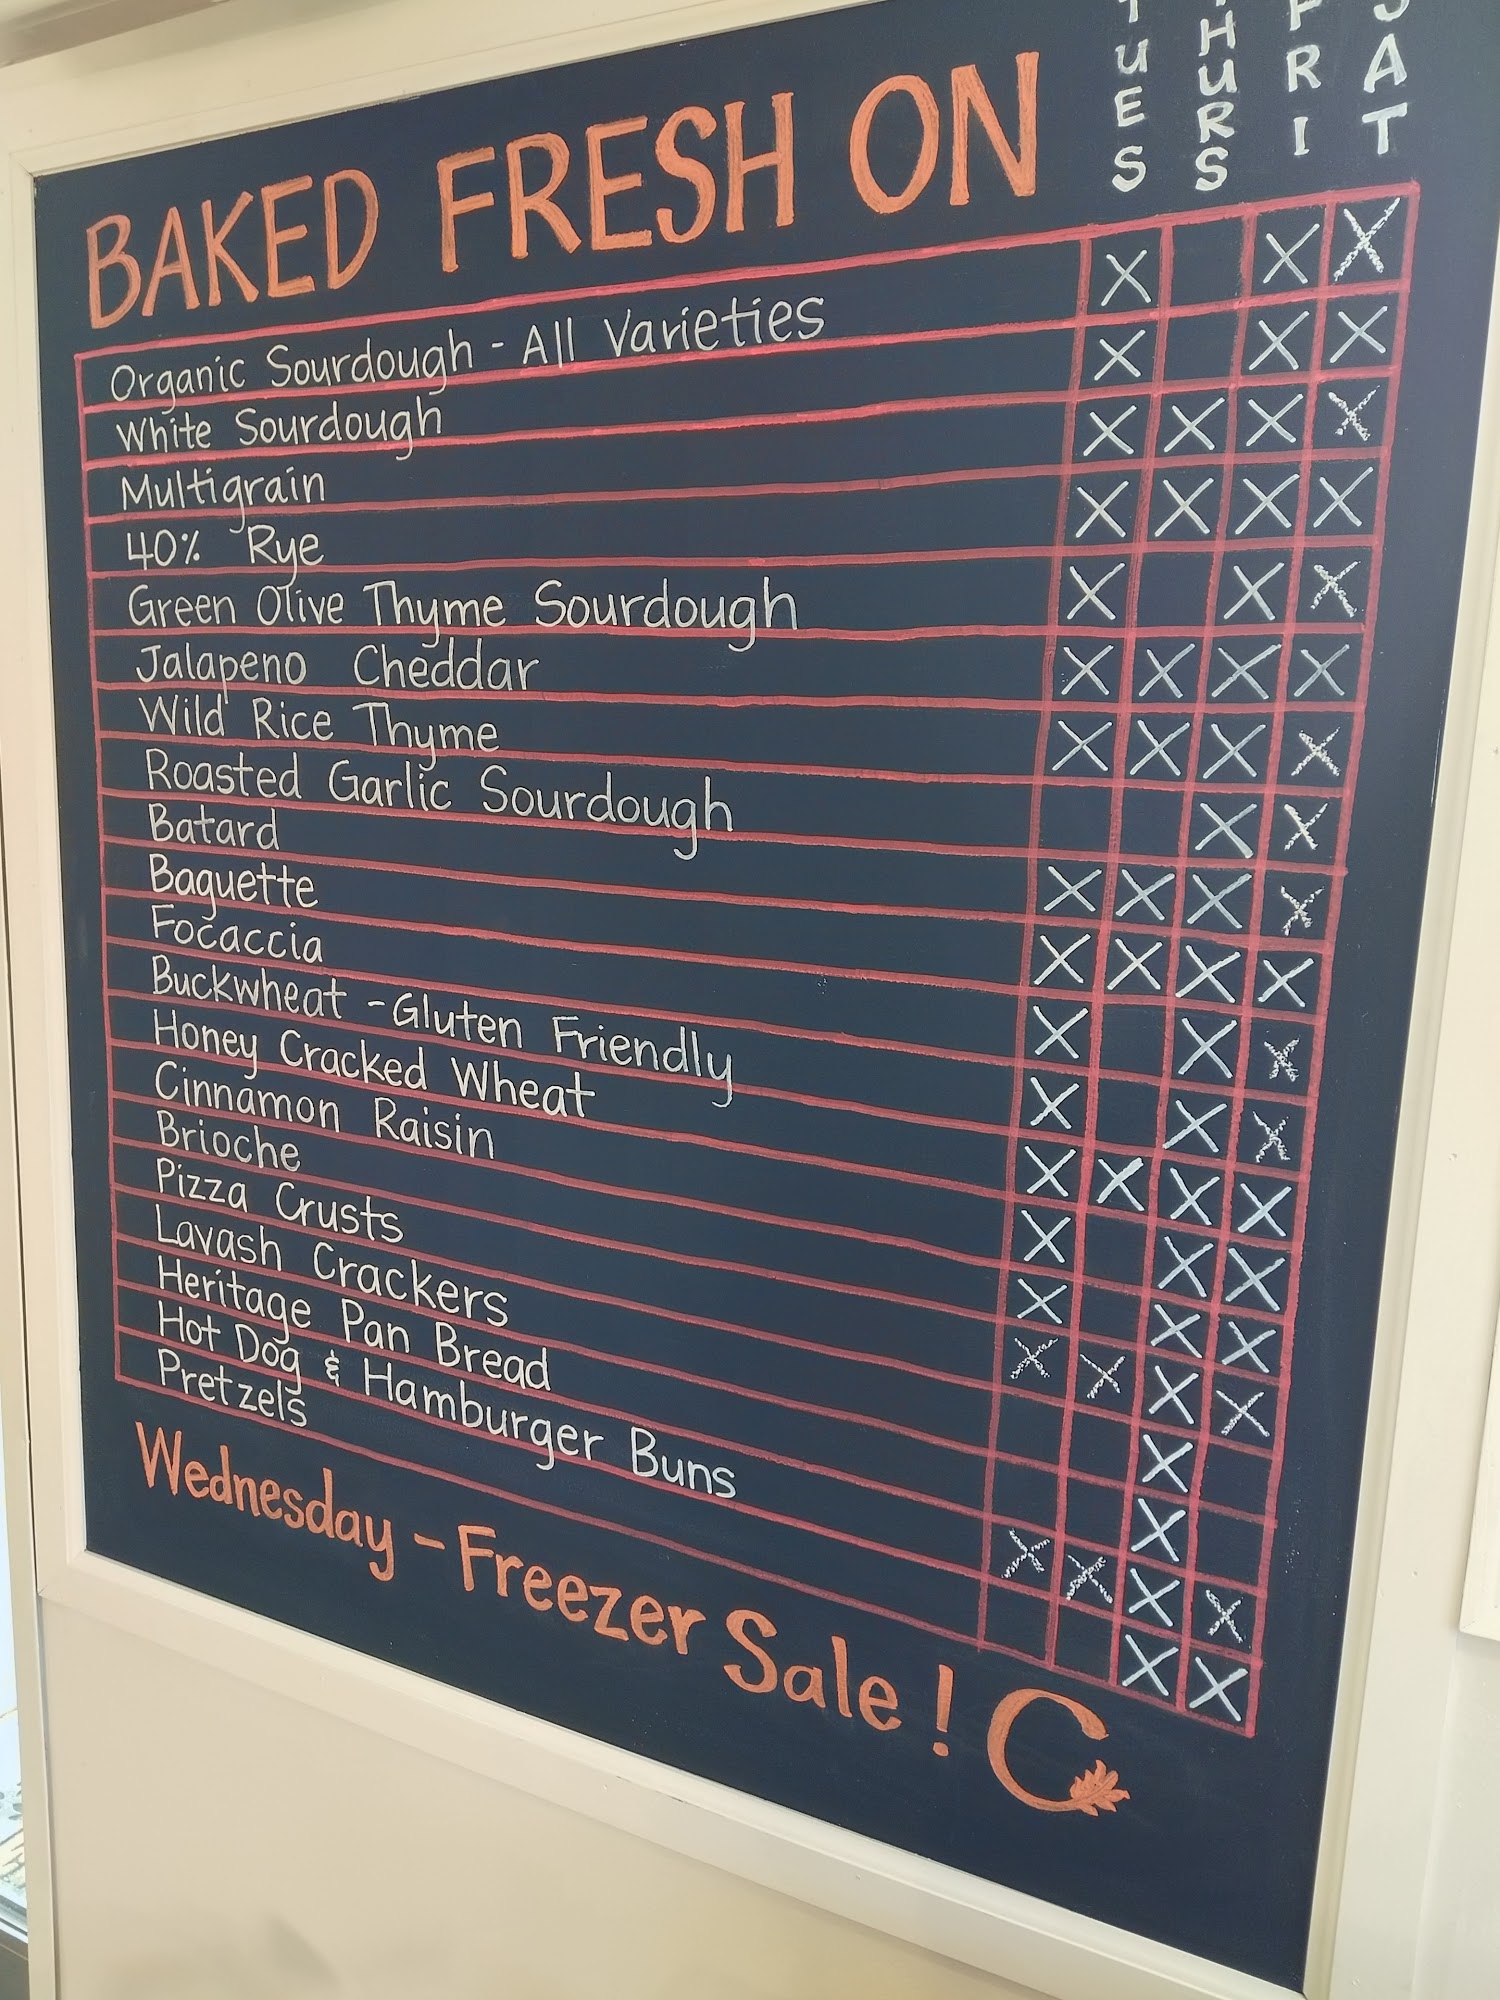 BAKED FRESH ON TUES THURS FRI SAT
Organic Sourdough - All Varieties X X X
White Sourdough X X X
Multigrain X X X X
40% Rye X X X X
Green Olive Thyme Sourdough X X X
Jalapeno Cheddar X X X X
Wild Rice Thyme X X X X
Roasted Garlic Sourdough X X
Batard X X X X
Baguette X X X X
Focaccia X X X
Buckwheat - Gluten Friendly X X X
Honey Cracked Wheat X X X X
Cinnamon Raisin X X X
Brioche X X X
Pizza Crusts X X X X
Lavash Crackers X
Heritage Pan Bread X
Hot Dog & Hamburger Buns X X X X
Pretzels X X
Wednesday - Freezer Sale! C